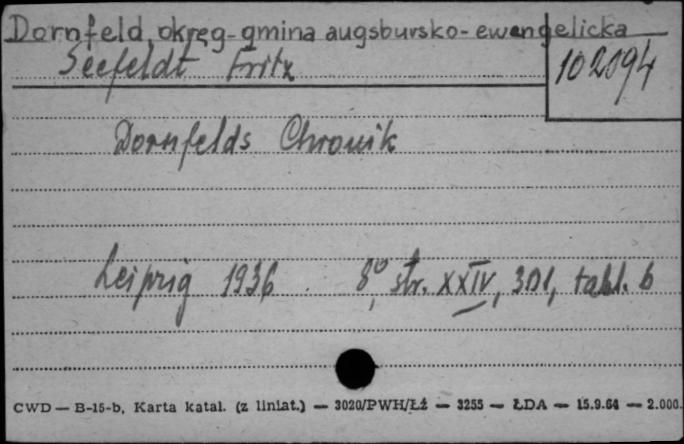 Dornfeld, okręg-gmina augsbursko-ewangelicka
Seefeldt Fritz
102094
Dornfelds Chronik
Leipzig 1936. 8°, str. XXIV, 301, tabl. 6
CWD — B-15-b, Karta katal. (z liniat.) — 3020/PWH/Łź — 3255 — ŁDA — 15.9.64 — 2.000.